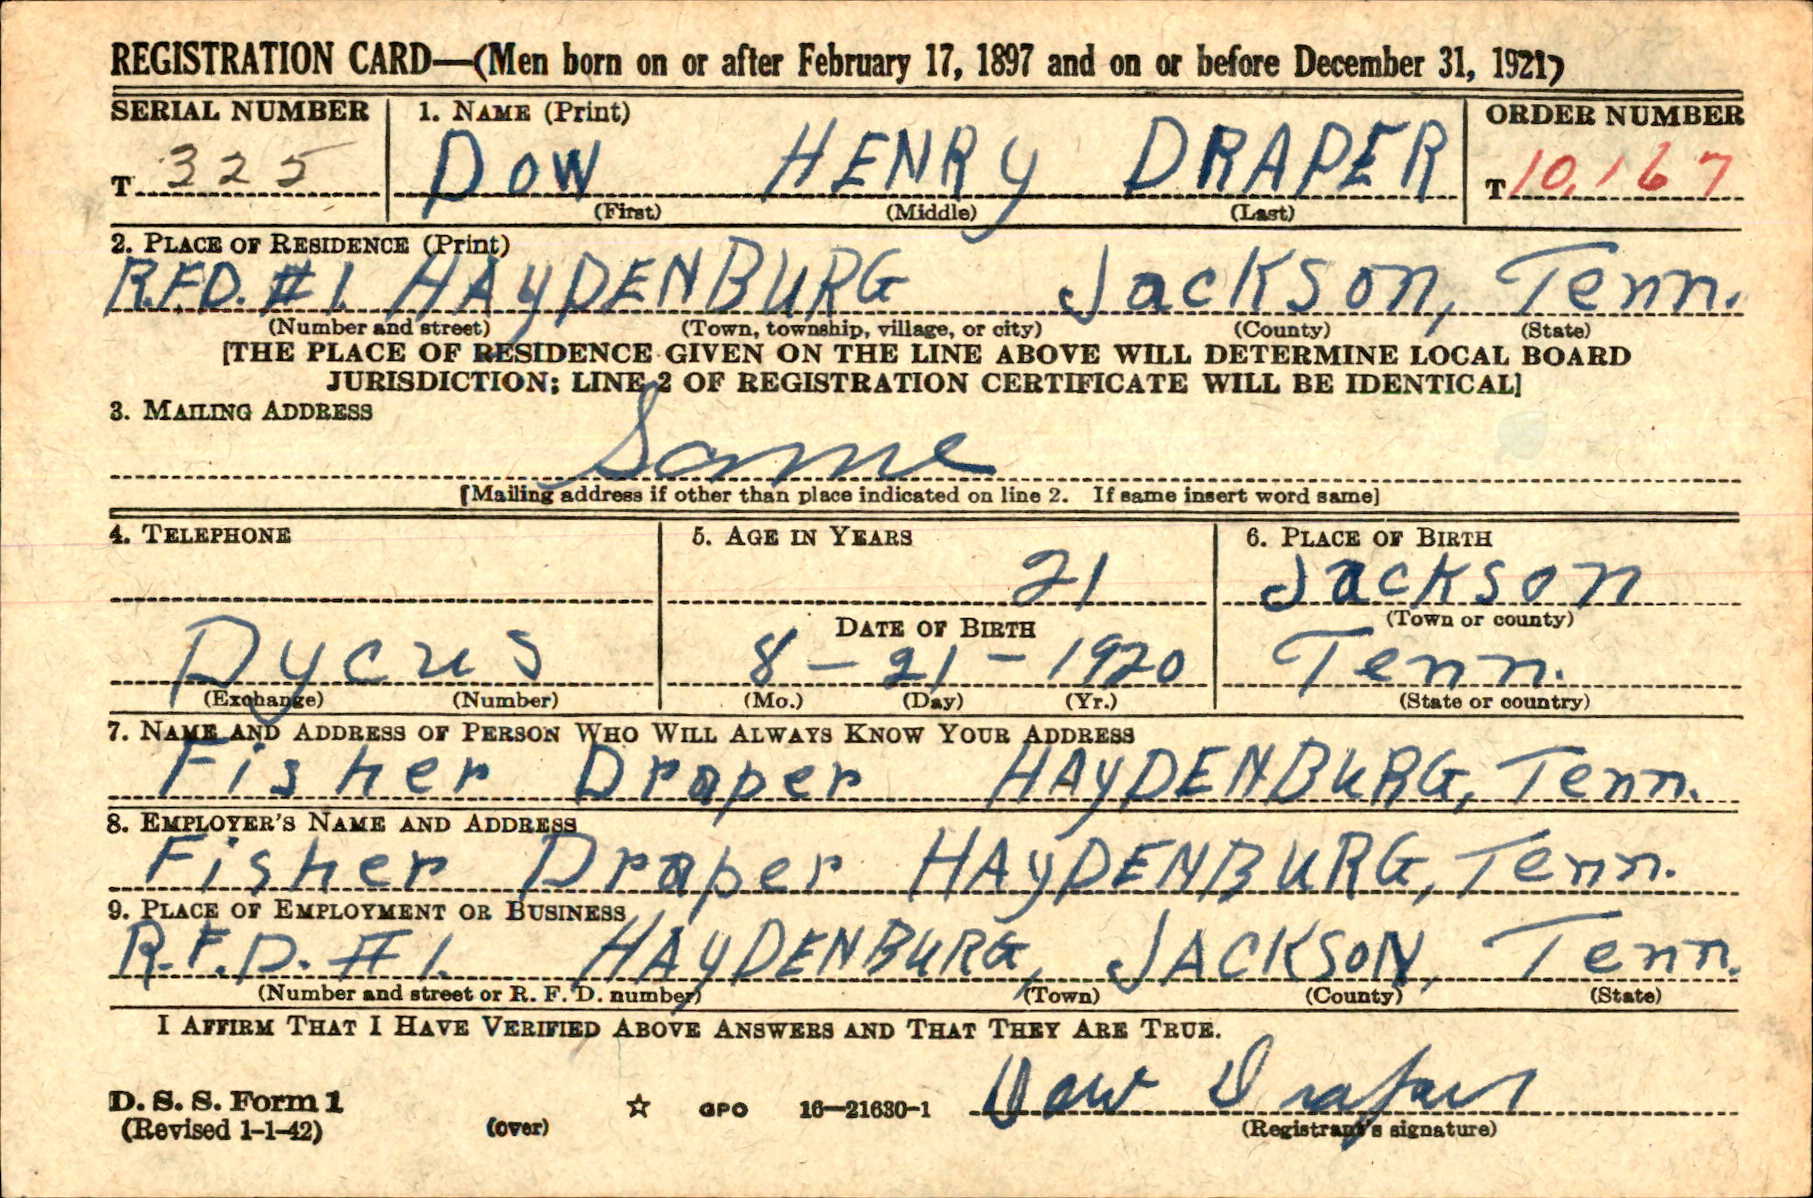 REGISTRATION CARD—(Men born on or after February 17, 1897 and on or before December 31, 1921)
SERIAL NUMBER 1. NAME (Print) ORDER NUMBER
T 325 DOW HENRY DRAPER T 10,167
(First) (Middle) (Last)
2. PLACE OF RESIDENCE (Print)
R.F.D. #1. HAYDENBURG Jackson, Tenn.
(Number and street) (Town, township, village, or city) (County) (State)
[THE PLACE OF RESIDENCE GIVEN ON THE LINE ABOVE WILL DETERMINE LOCAL BOARD
JURISDICTION; LINE 2 OF REGISTRATION CERTIFICATE WILL BE IDENTICAL]
3. MAILING ADDRESS
Same
[Mailing address if other than place indicated on line 2. If same insert word same]
4. TELEPHONE 5. AGE IN YEARS 6. PLACE OF BIRTH
21 Jackson
DATE OF BIRTH (Town or county)
Dycus 8-21-1920 Tenn.
(Exchange) (Number) (Mo.) (Day) (Yr.) (State or country)
7. NAME AND ADDRESS OF PERSON WHO WILL ALWAYS KNOW YOUR ADDRESS
Fisher Draper HAYDENBURG, Tenn.
8. EMPLOYER'S NAME AND ADDRESS
Fisher Draper HAYDENBURG, Tenn.
9. PLACE OF EMPLOYMENT OR BUSINESS
R.F.D. #1. HAYDENBURG, JACKSON, Tenn.
(Number and street or R. F. D. number) (Town) (County) (State)
I AFFIRM THAT I HAVE VERIFIED ABOVE ANSWERS AND THAT THEY ARE TRUE.
D. S. S. Form 1
(Revised 1-1-42) (over) ☆ GPO 16—21630-1 Dow Draper
(Registrant's signature)